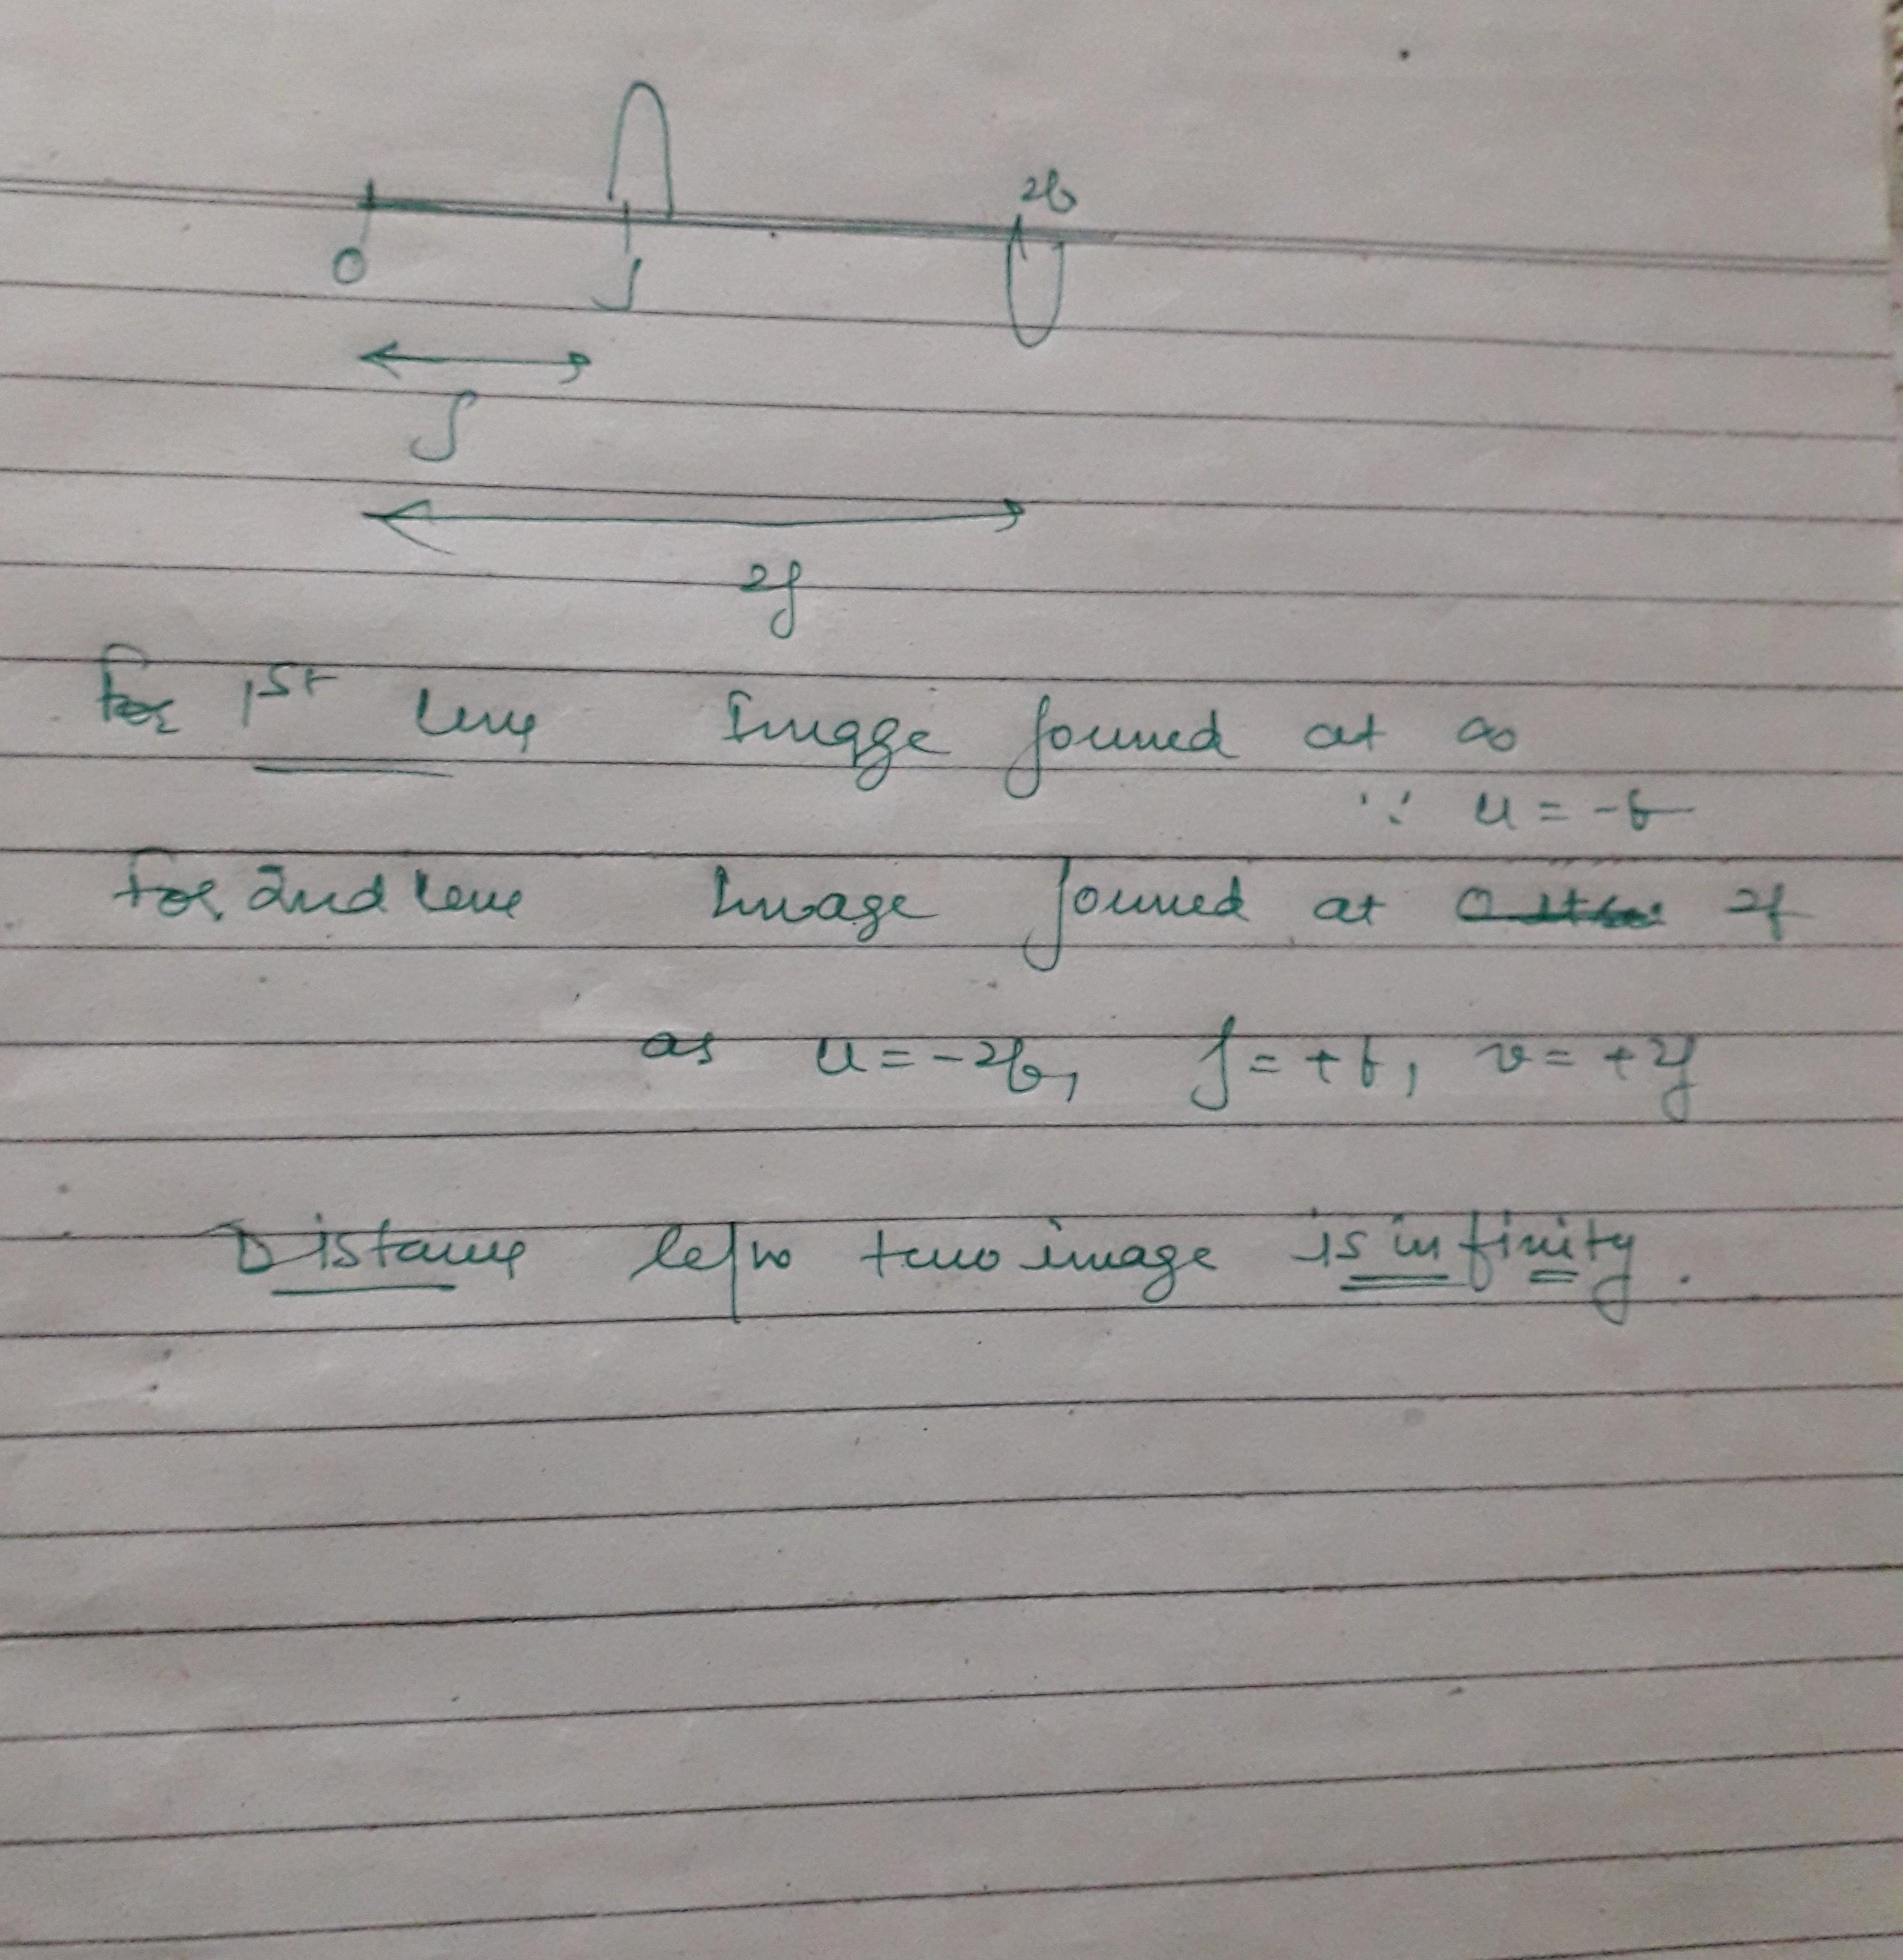 2f
O
f
f
2f
For 1st lens Image formed at ∞
∵ u = -f
For 2nd lens Image formed at 2f
as u = -2f, f = +f, v = +2f
Distance b/w two image is infinity.